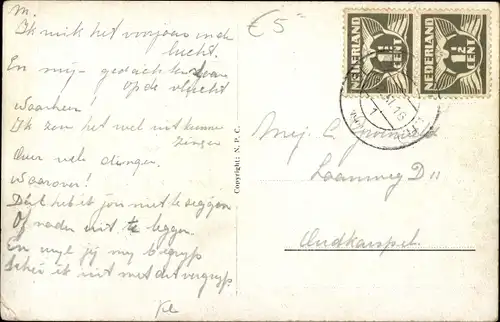 M.
Ik ruik het voorjaar in de
lucht.
En mijn gedachten slaan
op de vlucht
Waarheen!
Ik zou het wel uit kunnen
zingen
Over vele dingen.
Waarover!
Dat heb ik jou niet te zeggen
Of nader uit te leggen.
En wijl jij my begryp
Schei ik uit met dit vergryp.
€ 5
Copyright: N. P. C.
NEDERLAND
1½
CENT
NEDERLAND
1½
CENT
Mej. C.
Laanweg D 11
Oudkarspel.